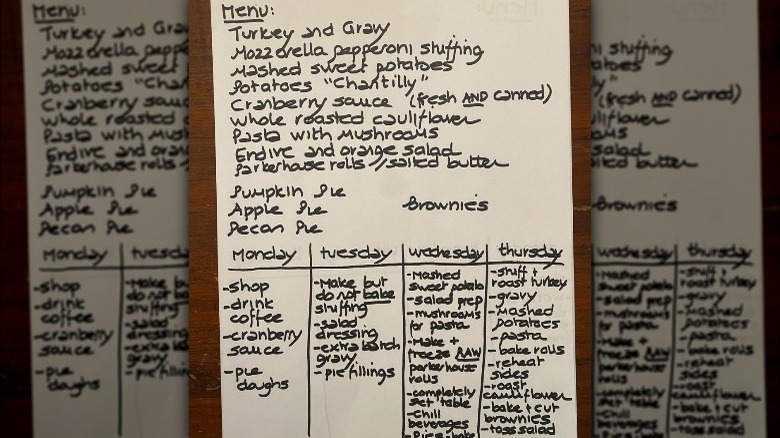 Menu:
Turkey and Gravy
Mozzarella pepperoni stuffing
Mashed sweet potatoes
Potatoes "Chantilly"
Cranberry sauce (fresh AND canned)
whole roasted cauliflower
Pasta with Mushrooms
Endive and orange salad
Parkerhouse rolls / salted butter
Pumpkin Pie
Apple Pie Brownies
Pecan Pie
Monday
-shop
-drink
coffee
-cranberry
sauce
-pie
doughs
tuesday
-Make but
do not bake
stuffing
-salad
dressing
-extra batch
gravy
-pie fillings
wednesday
-Mashed
sweet potato
-salad prep
-mushrooms
for pasta
-Make +
freeze RAW
parkerhouse
rolls
-completely
set table
-Chill
beverages
-Pies-bake
thursday
-stuff +
roast turkey
-gravy
-Mashed
potatoes
-pasta
-bake rolls
-reheat
sides
-roast
cauliflower
-bake + cut
brownies
-toss salad